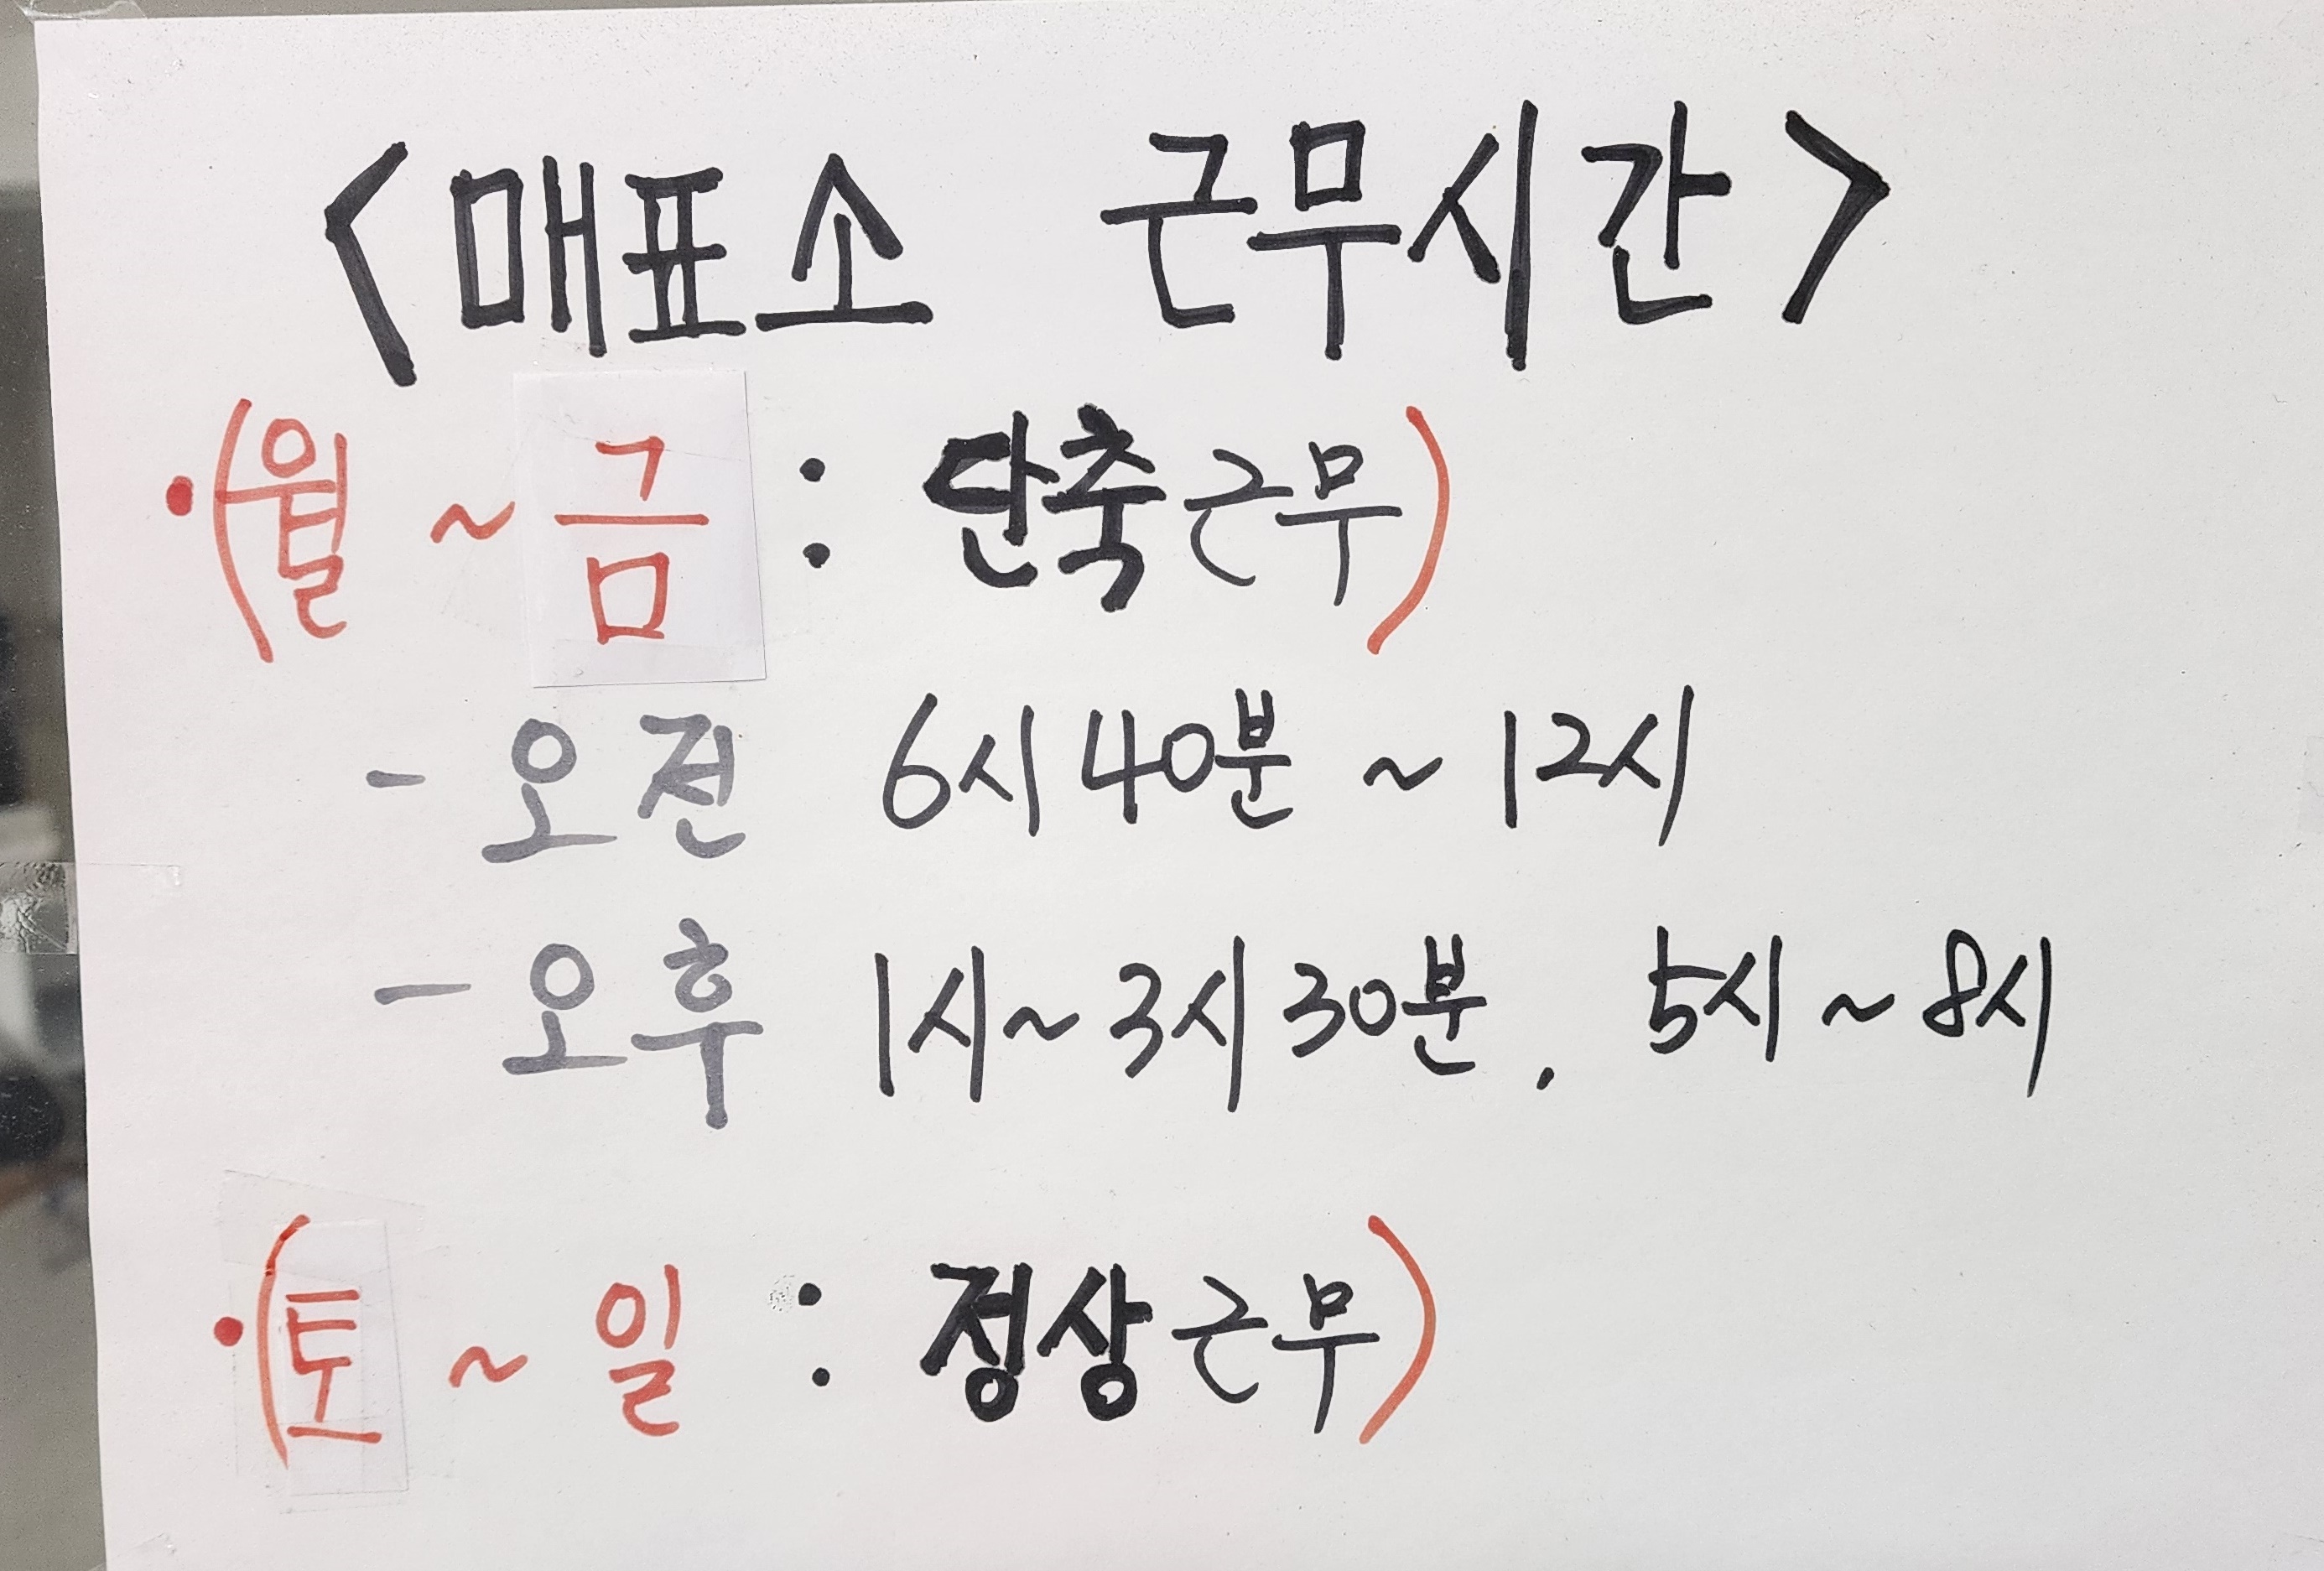 <매표소 근무시간>
•(월 ~ 금 : 단축근무)
- 오전 6시 40분 ~ 12시
- 오후 1시~3시 30분. 5시~8시
•(토 ~ 일 : 정상근무)